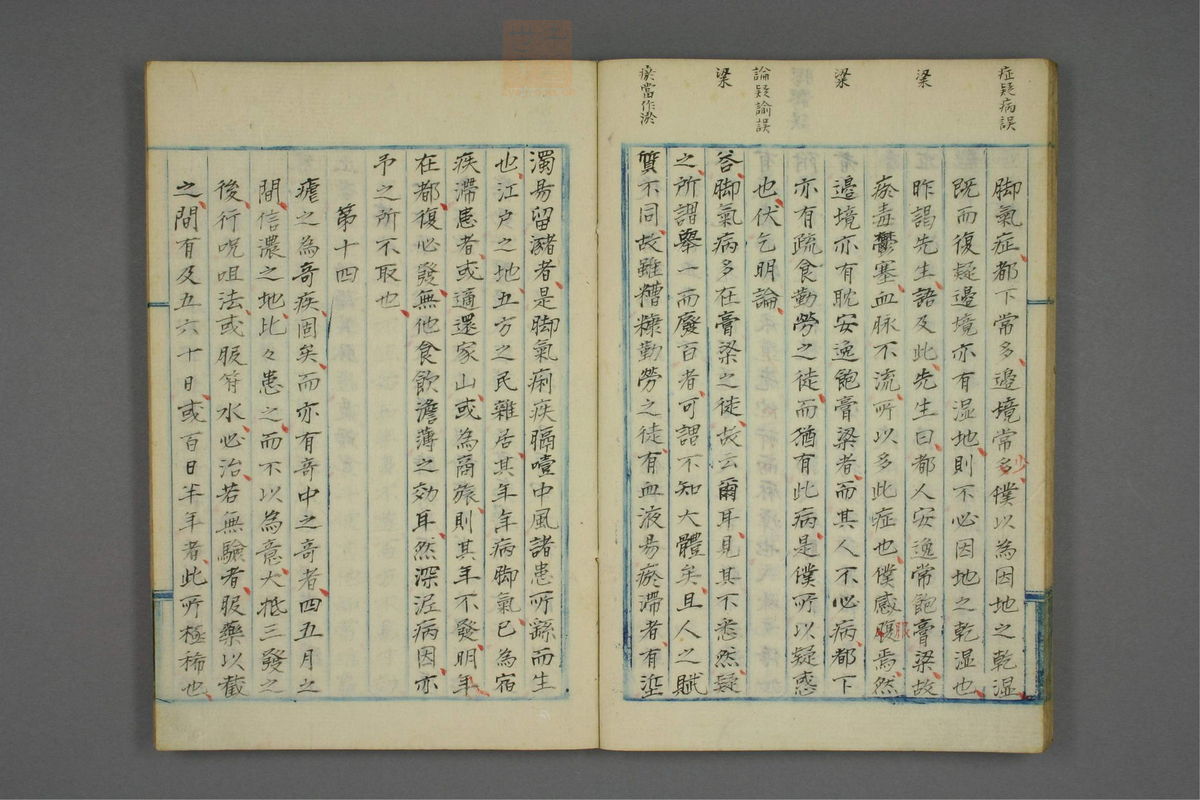 症疑病誤
梁
梁
論疑諭誤
梁
瘀當作淤
脚氣症都下常多邊境常多僕以為因地之乾湿
少
既而復疑邊境亦有湿地則不必因地之乾湿也
昨謁先生語及此先生曰都人安逸常飽膏梁故
瘀毒欝塞血脉不流所以多此症也僕感腹焉然
服
邊境亦有耽安逸飽膏梁者而其人不必病都下
亦有疏食勤勞之徒而猶有此病是僕所以疑惑
也伏乞明論
答脚氣病多在膏梁之徒故云爾耳見其不悉然疑
之所謂舉一而廢百者可謂不知大體矣且人之賦
質不同故雖糟糠勤勞之徒有血液易瘀滞者有
濁易留瀦者是脚氣痢疾膈噎中風諸患所繇而生
也江戸之地五方之民雜居其年年病脚氣已為宿
疾滞患者或適還家山或為商旅則其年不發明年
在都復必發無他食飲澹薄之効耳然深泥病因亦
予之所不取也
第十四
瘧之為奇疾固矣而亦有奇中之奇者四五月之
間信濃之地比々患之而不以為意大抵三發之
後行呪咀法或服符水必治若無驗者服藥以截
之間有及五六十日或百日半年者此所極稀也